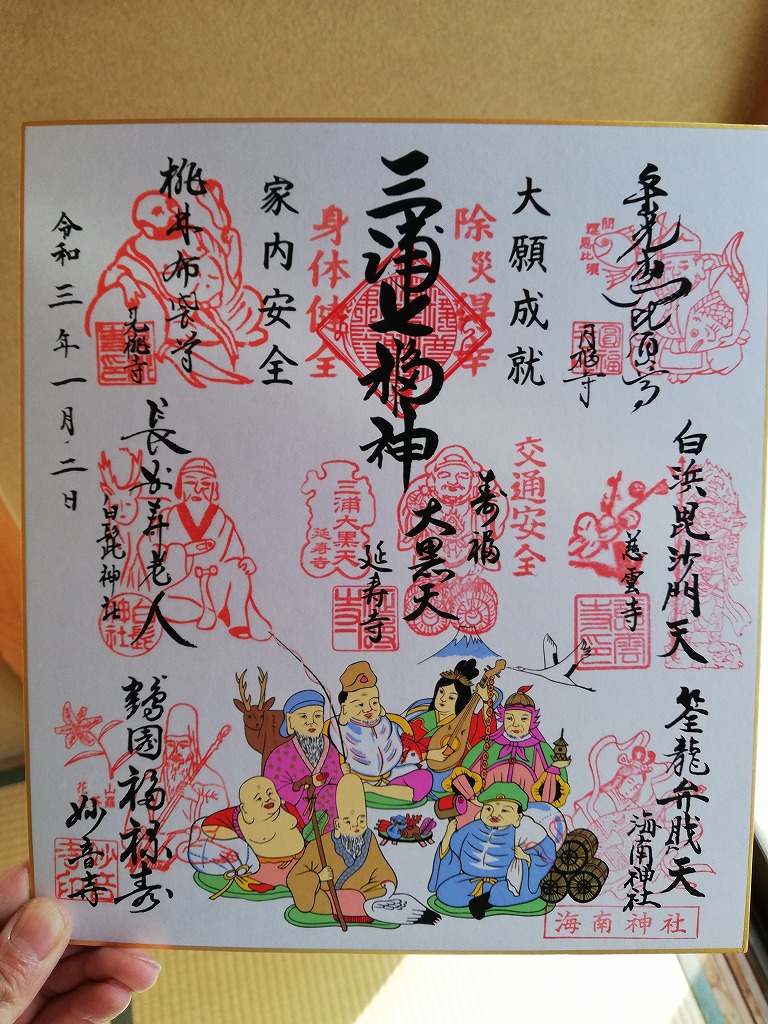 三浦七福神
大願成就
家内安全
除災得幸
身体健全
交通安全
令和三年一月二日
圓福
円福寺
白浜毘沙門天
慈雲寺
筌龍弁財天
海南神社
海南神社
寿福
大黒天
延寿寺
三浦大黒天
延寿寺
桃林布袋尊
見桃寺
長安寿老人
白髭神社
白髭神社
鶴園福禄寿
妙音寺